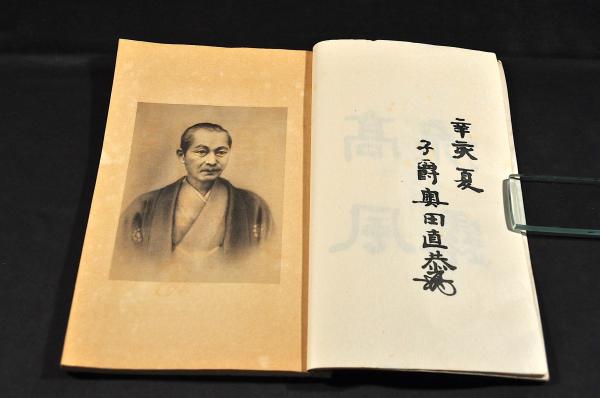 辛亥夏
子爵奥田直恭